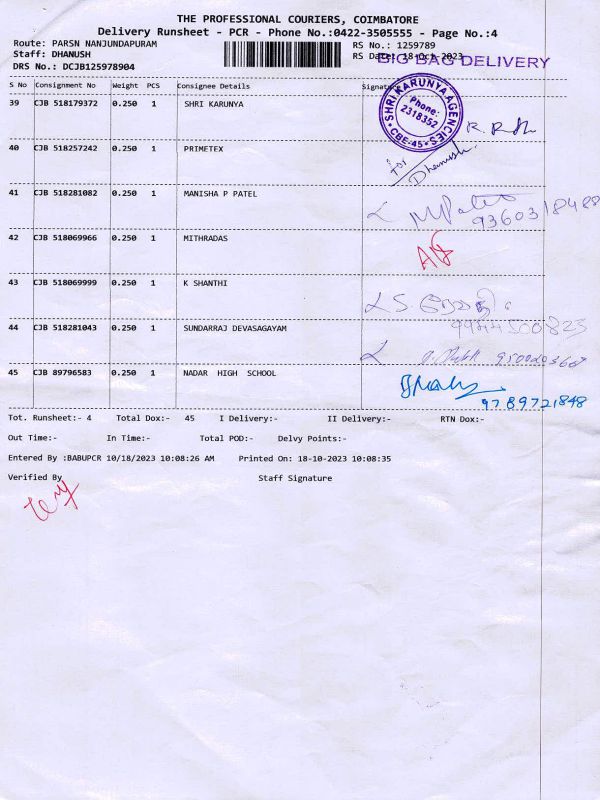 THE PROFESSIONAL COURIERS, COIMBATORE
Delivery Runsheet - PCR - Phone No.:0422-3505555 - Page No.:4
Route: PARSN NANJUNDAPURAM
RS No.: 1259789
Staff: DHANUSH
RS Date: 18-Oct-2023
BIG BAG DELIVERY
DRS No.: DCJB125978904
S No Consignment No Weight PCS Consignee Details Signature
39 CJB 518179372 0.250 1 SHRI KARUNYA
SHRI KARUNYA AGENCIES
Phone:
2318352
CBE-45
40 CJB 518257242 0.250 1 PRIMETEX
for Dhanush
41 CJB 518281082 0.250 1 MANISHA P PATEL
9360318488
42 CJB 518069966 0.250 1 MITHRADAS
43 CJB 518069999 0.250 1 K SHANTHI
44 CJB 518281043 0.250 1 SUNDARRAJ DEVASAGAYAM
45 CJB 89796583 0.250 1 NADAR HIGH SCHOOL
9789721848
Tot. Runsheet:- 4 Total Dox:- 45 I Delivery:- II Delivery:- RTN Dox:-
Out Time:- In Time:- Total POD:- Delvy Points:-
Entered By :BABUPCR 10/18/2023 10:08:26 AM Printed On: 18-10-2023 10:08:35
Verified By Staff Signature